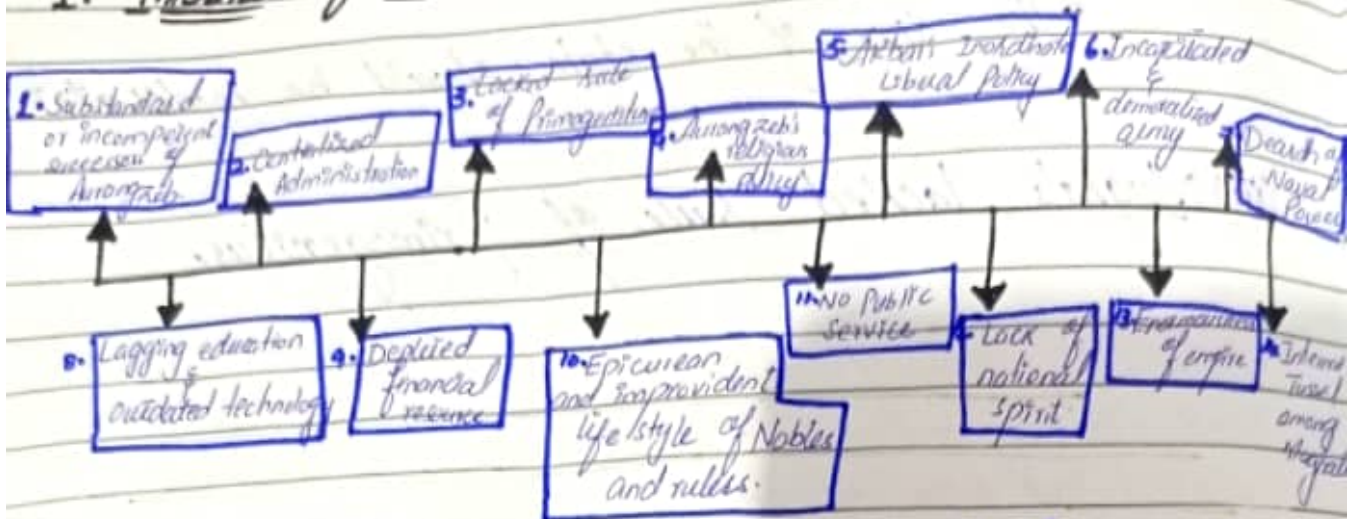 1.
1. Substandard
or incompetent
successors of
Aurangzeb
2. Centralized
Administration
3. Lacked rule
of Primogeniture
4. Aurangzeb's
religious
policy
5. Akbar's Inordinate
liberal Policy
6. Incapitated
&
demoralized
army
7. Dearth of
Naval
Power
8. Lagging education
&
outdated technology
9. Depleted
financial
resource
10. Epicurean
and improvident
life style of Nobles
and rulers.
11. No Public
Service
Lack of
national
spirit
13. Enormousness
of empire
Internal
Tussel
among